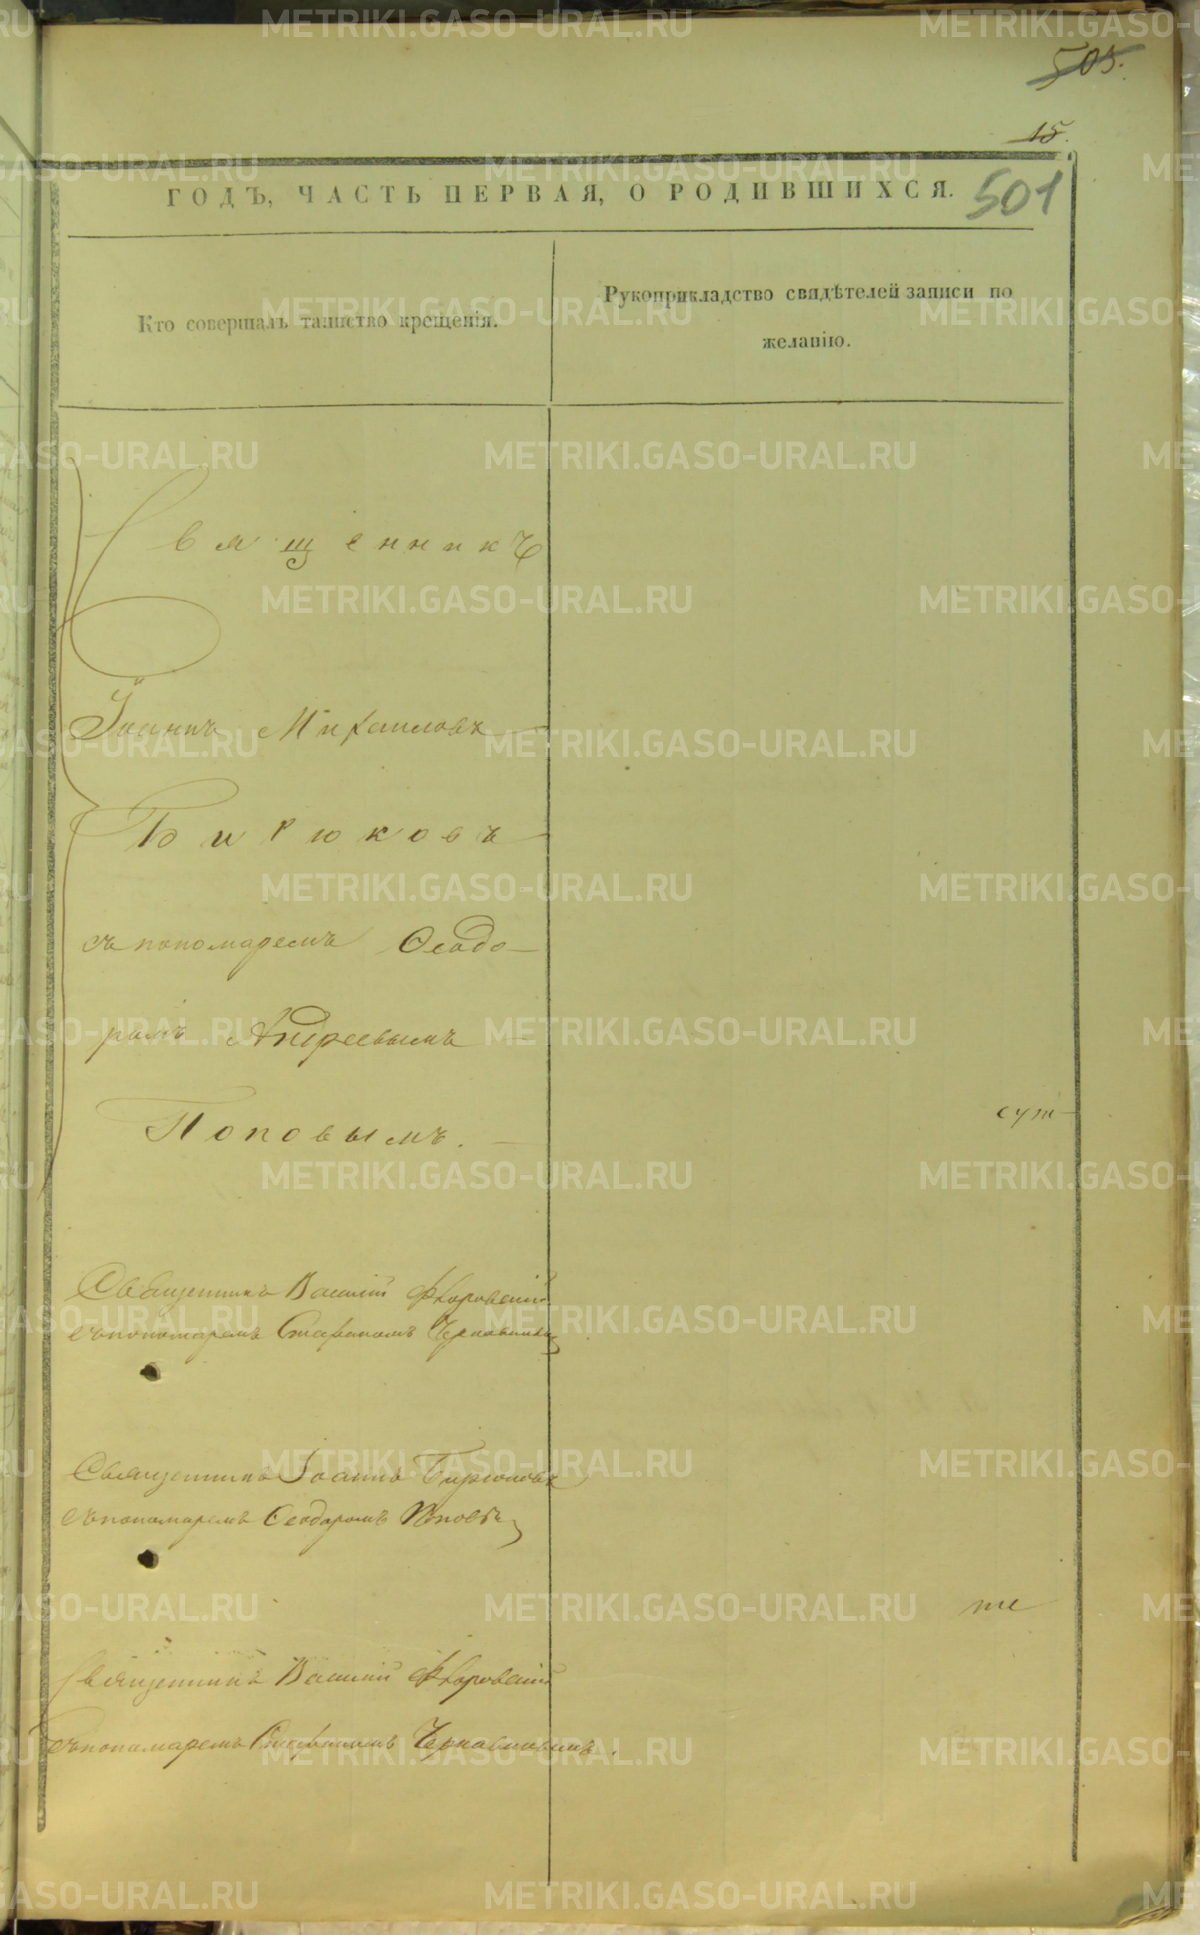 505.
15.
ГОДЪ, ЧАСТЬ ПЕРВАЯ, О РОДИВШИХСЯ.
501
Кто совершалъ таинство крещенія.
Рукоприкладство свидѣтелей записи по
желанію.
Священникъ
Іоаннъ Михаиловъ
Бирюковъ
съ пономаремъ Ѳеодо-
ромъ Андреевымъ
Поповымъ.
Священникъ Василій Флоровскій
съ пономаремъ Стефаномъ
Священникъ Іоаннъ Бирюковъ
съ пономаремъ Ѳеодоромъ
те
Священникъ Василій Флоровскій
съ пономаремъ Стефаномъ Чернавинымъ.
METRIKI.GASO-URAL.RU